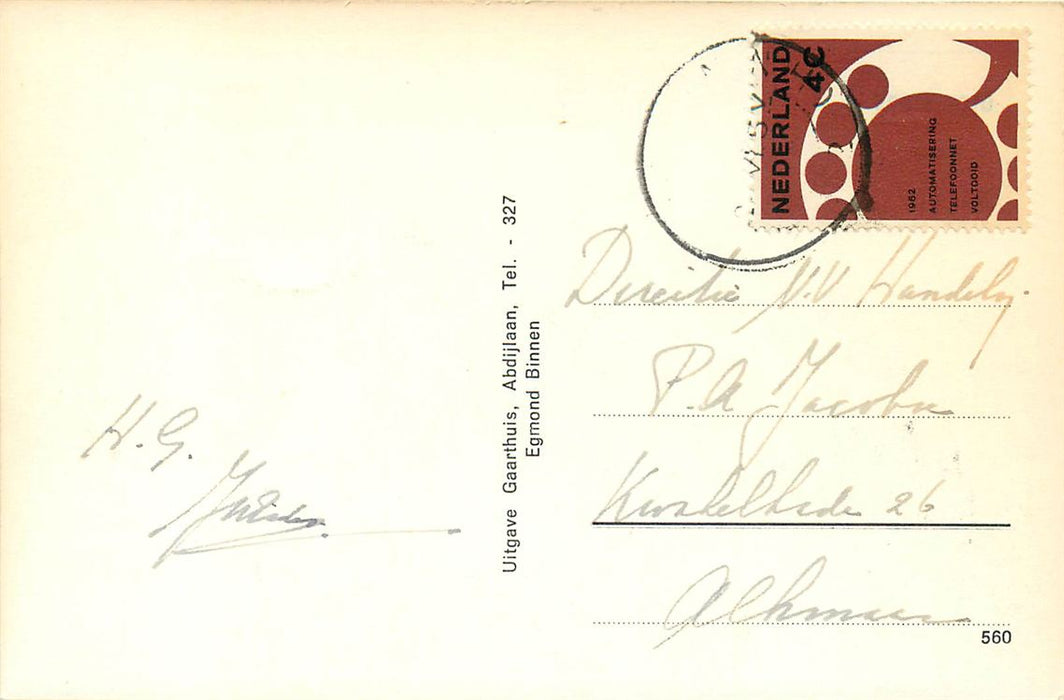 NEDERLAND
4C
1962
AUTOMATISERING
TELEFOONNET
VOLTOOID
Directie N.V Handelmij.
P. A Jacobu
Kwakelkade 26
Alkmaar
560
Uitgave Gaarthuis, Abdijlaan, Tel. - 327
Egmond Binnen
H. G.